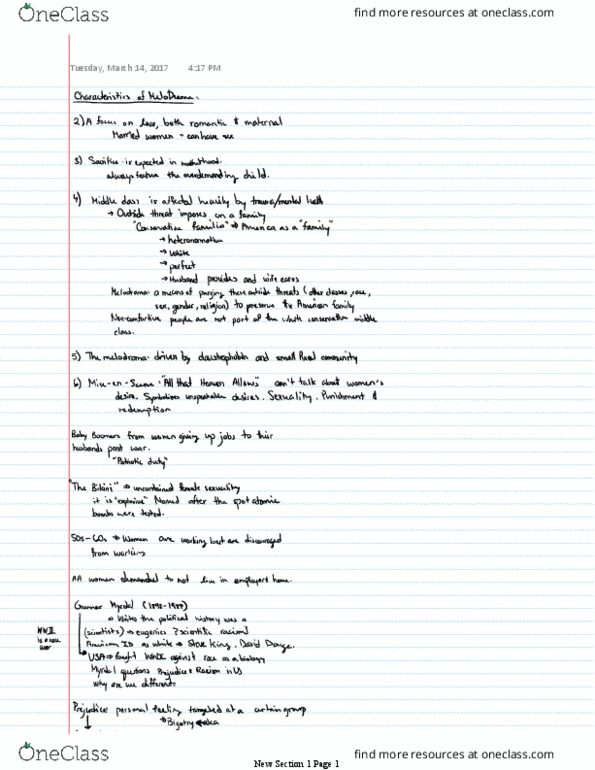 OneClass
find more resources at oneclass.com
Tuesday, March 14, 2017 4:17 PM
Characteristics of MeloDrama.
2) A focus on love, both romantic & maternal
Married women - can have sex
3) Sacrifice is expected in motherhood.
always feature the overdemanding child.
4) Middle class is affected heavily by trauma/mental health
→ Outside threat imposes on a family
"Conservative Families" → America as a "family"
→ heteronormative
→ white
→ perfect
→ Husband provides and wife cares
Melodrama: a means of purging these outside threats (other classes, race,
sex, gender, religion) to preserve the American family
people are not part of the white conservative middle
class.
5) The melodrama: driven by claustrophobia and small rural community
6) Mise-en-Scene: "All that Heaven Allows" can't talk about women's
desire. Symbolizes unspeakable desires. Sexuality. Punishment &
redemption
Baby Boomers from women giving up jobs to their
husbands post war.
"Patriotic duty"
"The Bikini" → uncontained female sexuality
it is "explosive" Named after the spot atomic
bombs were tested.
50s-60s → Women are working but are discouraged
from working
AA women demanded to not live in employers home.
Gunnar Myrdal (1898-1987)
→ Writes the political history was a
(scientists) → eugenics ? scientific racism?
American ID as white → Steve King, David
WWII
is a race
war
USA → fought WWII against race as a biology
Myrdal questions Prejudice & Racism in US
Why are we different?
Prejudice personal feeling targeted at a certain group
→ Bigotry
OneClass
find more resources at oneclass.com
New Section 1 Page 1